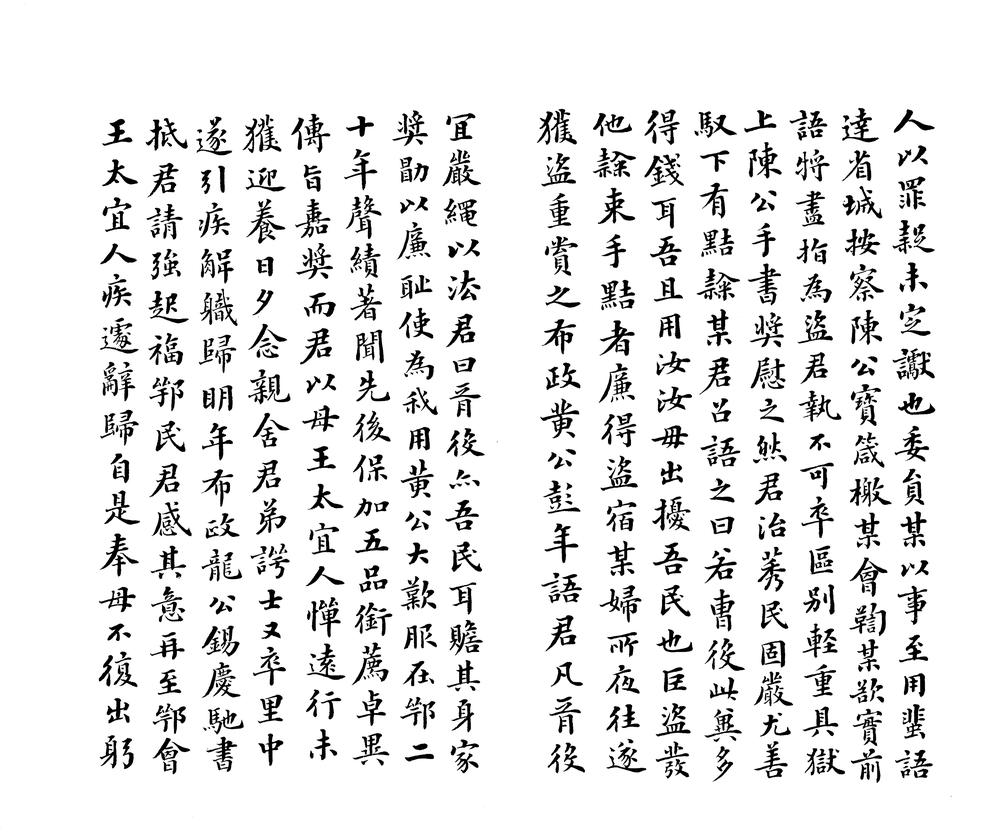 人以罪疑未定讞也委員某以事至用蜚語
達省城按察陳公寶箴檄某會鞫某欲實前
語將盡指為盜君執不可卒區别輕重具獄
上陳公手書奬慰之然君治莠民固嚴尤善
馭下有黠隸某君召語之曰若曹後此無多
得錢耳吾且用汝汝毋出擾吾民也巨盜發
他隸束手黠者廉得盜宿某婦所夜往遂
獲盜重賞之布政黄公彭年語君凡胥役
宜嚴繩以法君曰胥役亦吾民耳贍其身家
奬勖以廉耻使為我用黄公大歎服在鄂二
十年聲績著聞先後保加五品銜薦卓異
傳旨嘉奬而君以母王太宜人憚遠行未
獲迎養日夕念親舍君弟諤士又卒里中
遂引疾解職歸明年布政龍公錫慶馳書
抵君請強起福鄂民君感其意再至鄂會
王太宜人疾遽辭歸自是奉母不復出躬